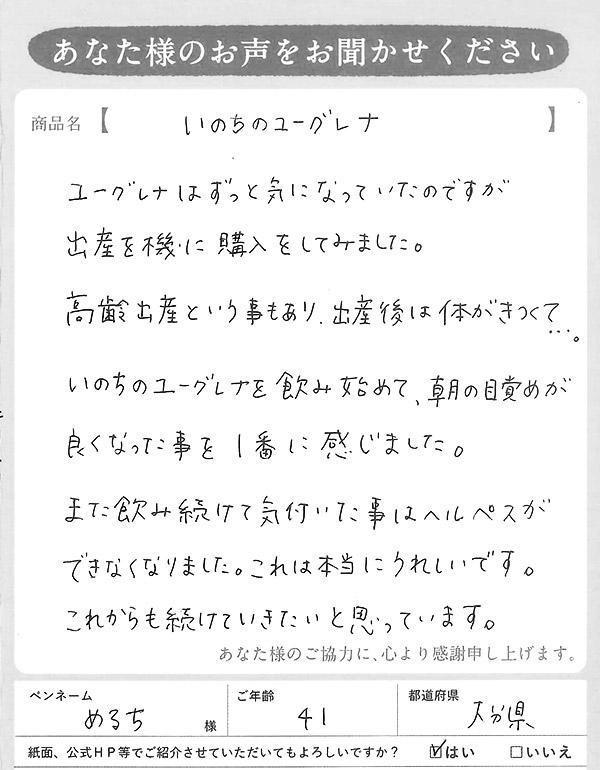 あなた様のお声をお聞かせください
商品名【 いのちのユーグレナ 】
ユーグレナはずっと気になっていたのですが
出産を機に購入をしてみました。
高齢出産という事もあり、出産後は体がきつくて…。
いのちのユーグレナを飲み始めて、朝の目覚めが
良くなった事を1番に感じました。
また飲み続けて気付いた事はヘルペスが
できなくなりました。これは本当にうれしいです。
これからも続けていきたいと思っています。
あなた様のご協力に、心より感謝申し上げます。
ペンネーム ご年齢 都道府県
めるち 様 41 大分県
紙面、公式HP等でご紹介させていただいてもよろしいですか? ☑はい □いいえ